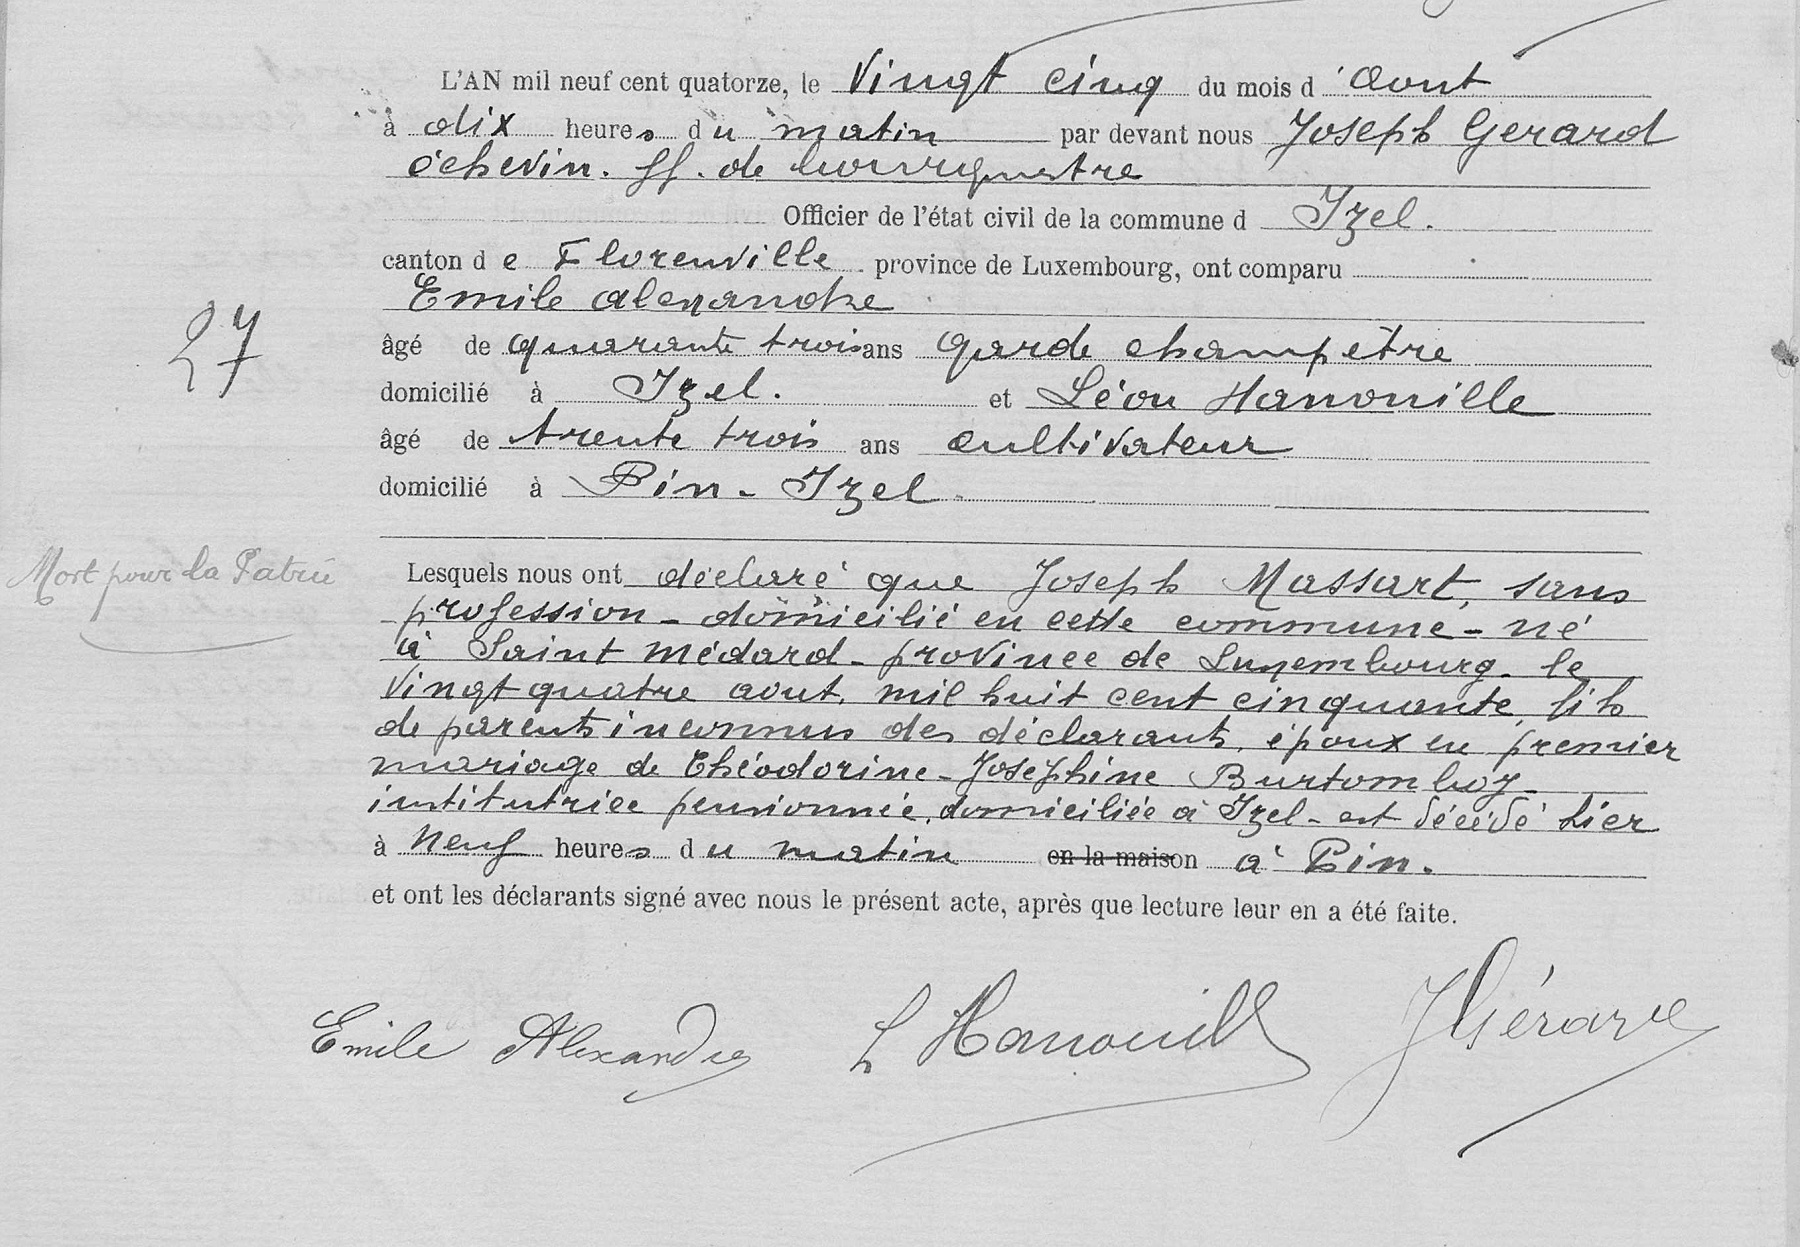 L'AN mil neuf cent quatorze, le vingt cinq du mois d'aout
à dix heures du matin par devant nous Joseph Gerard
échevin. ff. de bourgmestre
Officier de l'état civil de la commune d Izel.
canton de Florenville province de Luxembourg, ont comparu
Emile alexandre
27
âgé de quarante trois ans garde champêtre
domicilié à Izel. et Léon Hanouille
âgé de trente trois ans cultivateur
domicilié à Pin-Izel.
Mort pour la Patrie
Lesquels nous ont déclaré que Joseph Massart, sans
profession - domicilié en cette commune - né
à Saint Médard - province de Luxembourg - le
vingt quatre aout, mil huit cent cinquante, fils
de parents inconnus des déclarants, époux en premier
mariage de Théodorine-Joséphine Burtomboy
institutrice pensionnée, domiciliée à Izel - est décédé hier
à neuf heures du matin en la maison à Pin.
et ont les déclarants signé avec nous le présent acte, après que lecture leur en a été faite.
Emile Alexandre L Hanouille J Gérard